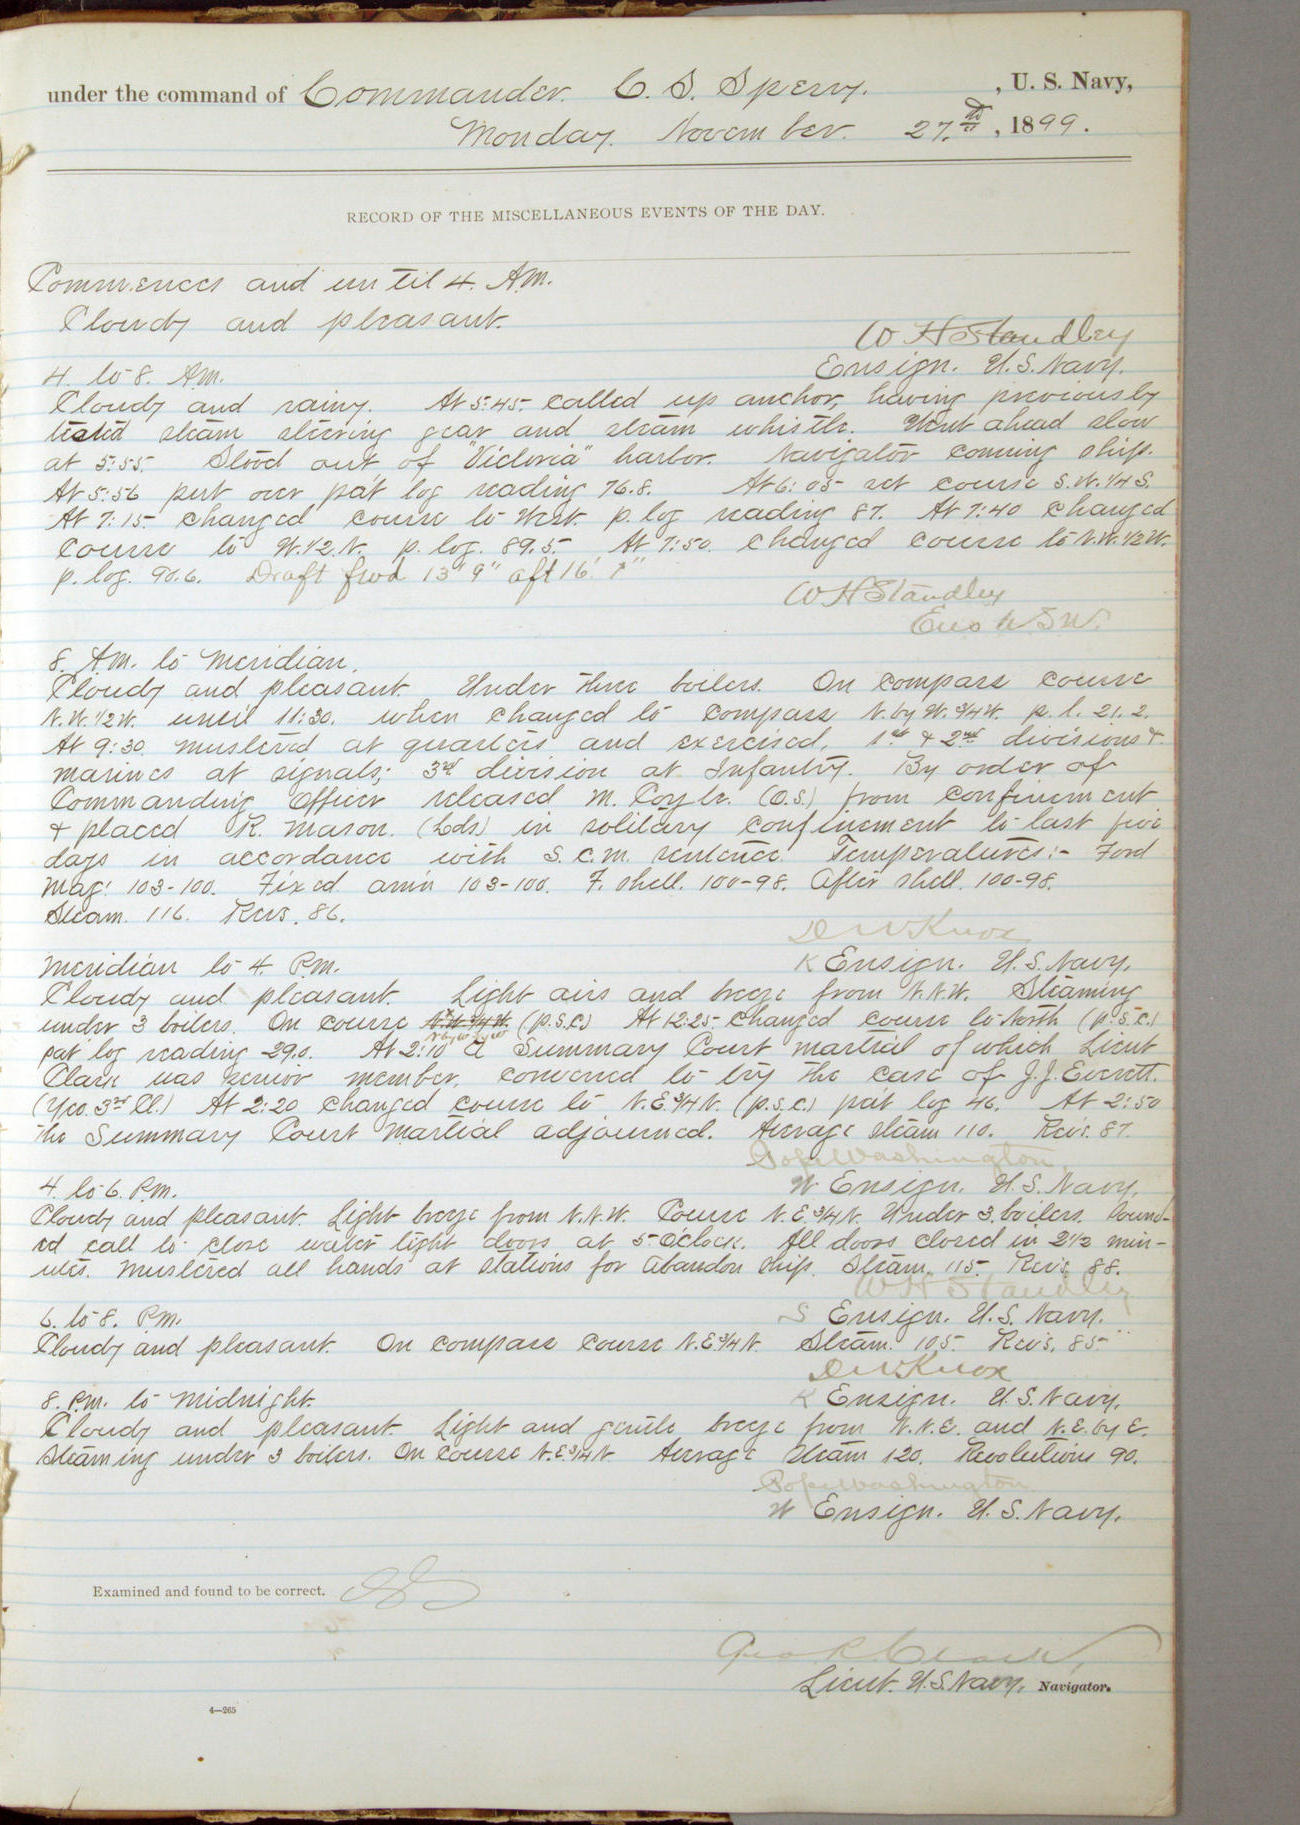 under the command of Commander. C. S. Sperry. , U. S. Navy,
Monday. November. 27.th , 1899.
RECORD OF THE MISCELLANEOUS EVENTS OF THE DAY.
Commences and until 4. A.M.
Cloudy and pleasant.
W H Standley
Ensign. U.S. Navy.
4. to 8. A.M.
Cloudy and rainy. At 5:45. called up anchor, having previously
tested steam steering gear and steam whistle. Went ahead slow
at 5:55. Stood out of "Victoria" harbor. Navigator conning ship.
At 5:56 put over pat log reading 76.8. At 6:05 set course S.W. 1/4 S.
At 7:15 changed course to West. p. log reading 87. At 7:40 changed
course to W. 1/2 N. p. log. 89.5. At 7:50 changed course to N.W. 1/2 W.
p. log. 90.6. Draft fwd 13' 9" aft 16' 1"
W H Standley
Ens U.S.N.
8. A.M. to Meridian.
Cloudy and pleasant. Under three boilers. On compass course
N.W. 1/2 W. until 11:30. when changed to compass N. by W. 3/4 W. p. l. 21.2.
At 9:30 mustered at quarters and exercised, 1st & 2nd divisions &
marines at signals; 3rd division at Infantry. By order of
Commanding Officer released M. Coyle. (O.S.) from confinement
& placed R. Mason. (Lds) in solitary confinement to last five
days in accordance with S.C.M. sentence. Temperatures:- Ford
Mag: 103-100. Fixed am'n 103-100. F. shell. 100-98. After shell. 100-98.
Steam. 116. Revs. 86.
D W Knox
K Ensign. U.S. Navy.
Meridian to 4. P.M.
Cloudy and pleasant. Light airs and breeze from N.N.W. Steaming
under 3 boilers. On course N.W. 3/4 W. (p.s.c.) At 12:25 changed course to North (p.s.c.)
pat log reading 29.0. At 2:10 a Summary Court martial of which Lieut
Clark was senior member, convened to try the case of J. J. Everett.
(Yeo. 3rd Cl.) At 2:20 changed course to N.E. 3/4 N. (p.s.c.) pat log 46. At 2:50
the Summary Court Martial adjourned. Average steam 110. Revs. 87.
Pope Washington
W Ensign. U.S. Navy.
4. to 6. P.M.
Cloudy and pleasant. Light breeze from N.N.W. Course N.E. 3/4 N. Under 3 boilers. Sound-
ed call to close water tight doors at 5 o'clock. All doors closed in 2 1/2 min-
utes. Mustered all hands at stations for abandon ship. Steam. 115. Revs. 88.
W H Standley
S Ensign. U.S. Navy.
6. to 8. P.M.
Cloudy and pleasant. On compass course N.E. 3/4 N. Steam. 105. Revs. 85.
D W Knox
K Ensign. U.S. Navy.
8. P.M. to Midnight.
Cloudy and pleasant. Light and gentle breeze from N.N.E. and N.E. by E.
Steaming under 3 boilers. On course N.E. 3/4 N. Average Steam 120. Revolutions 90.
Pope Washington
W Ensign. U.S. Navy.
Examined and found to be correct.
Geo R Clark,
Lieut. U.S. Navy, Navigator.
4—265